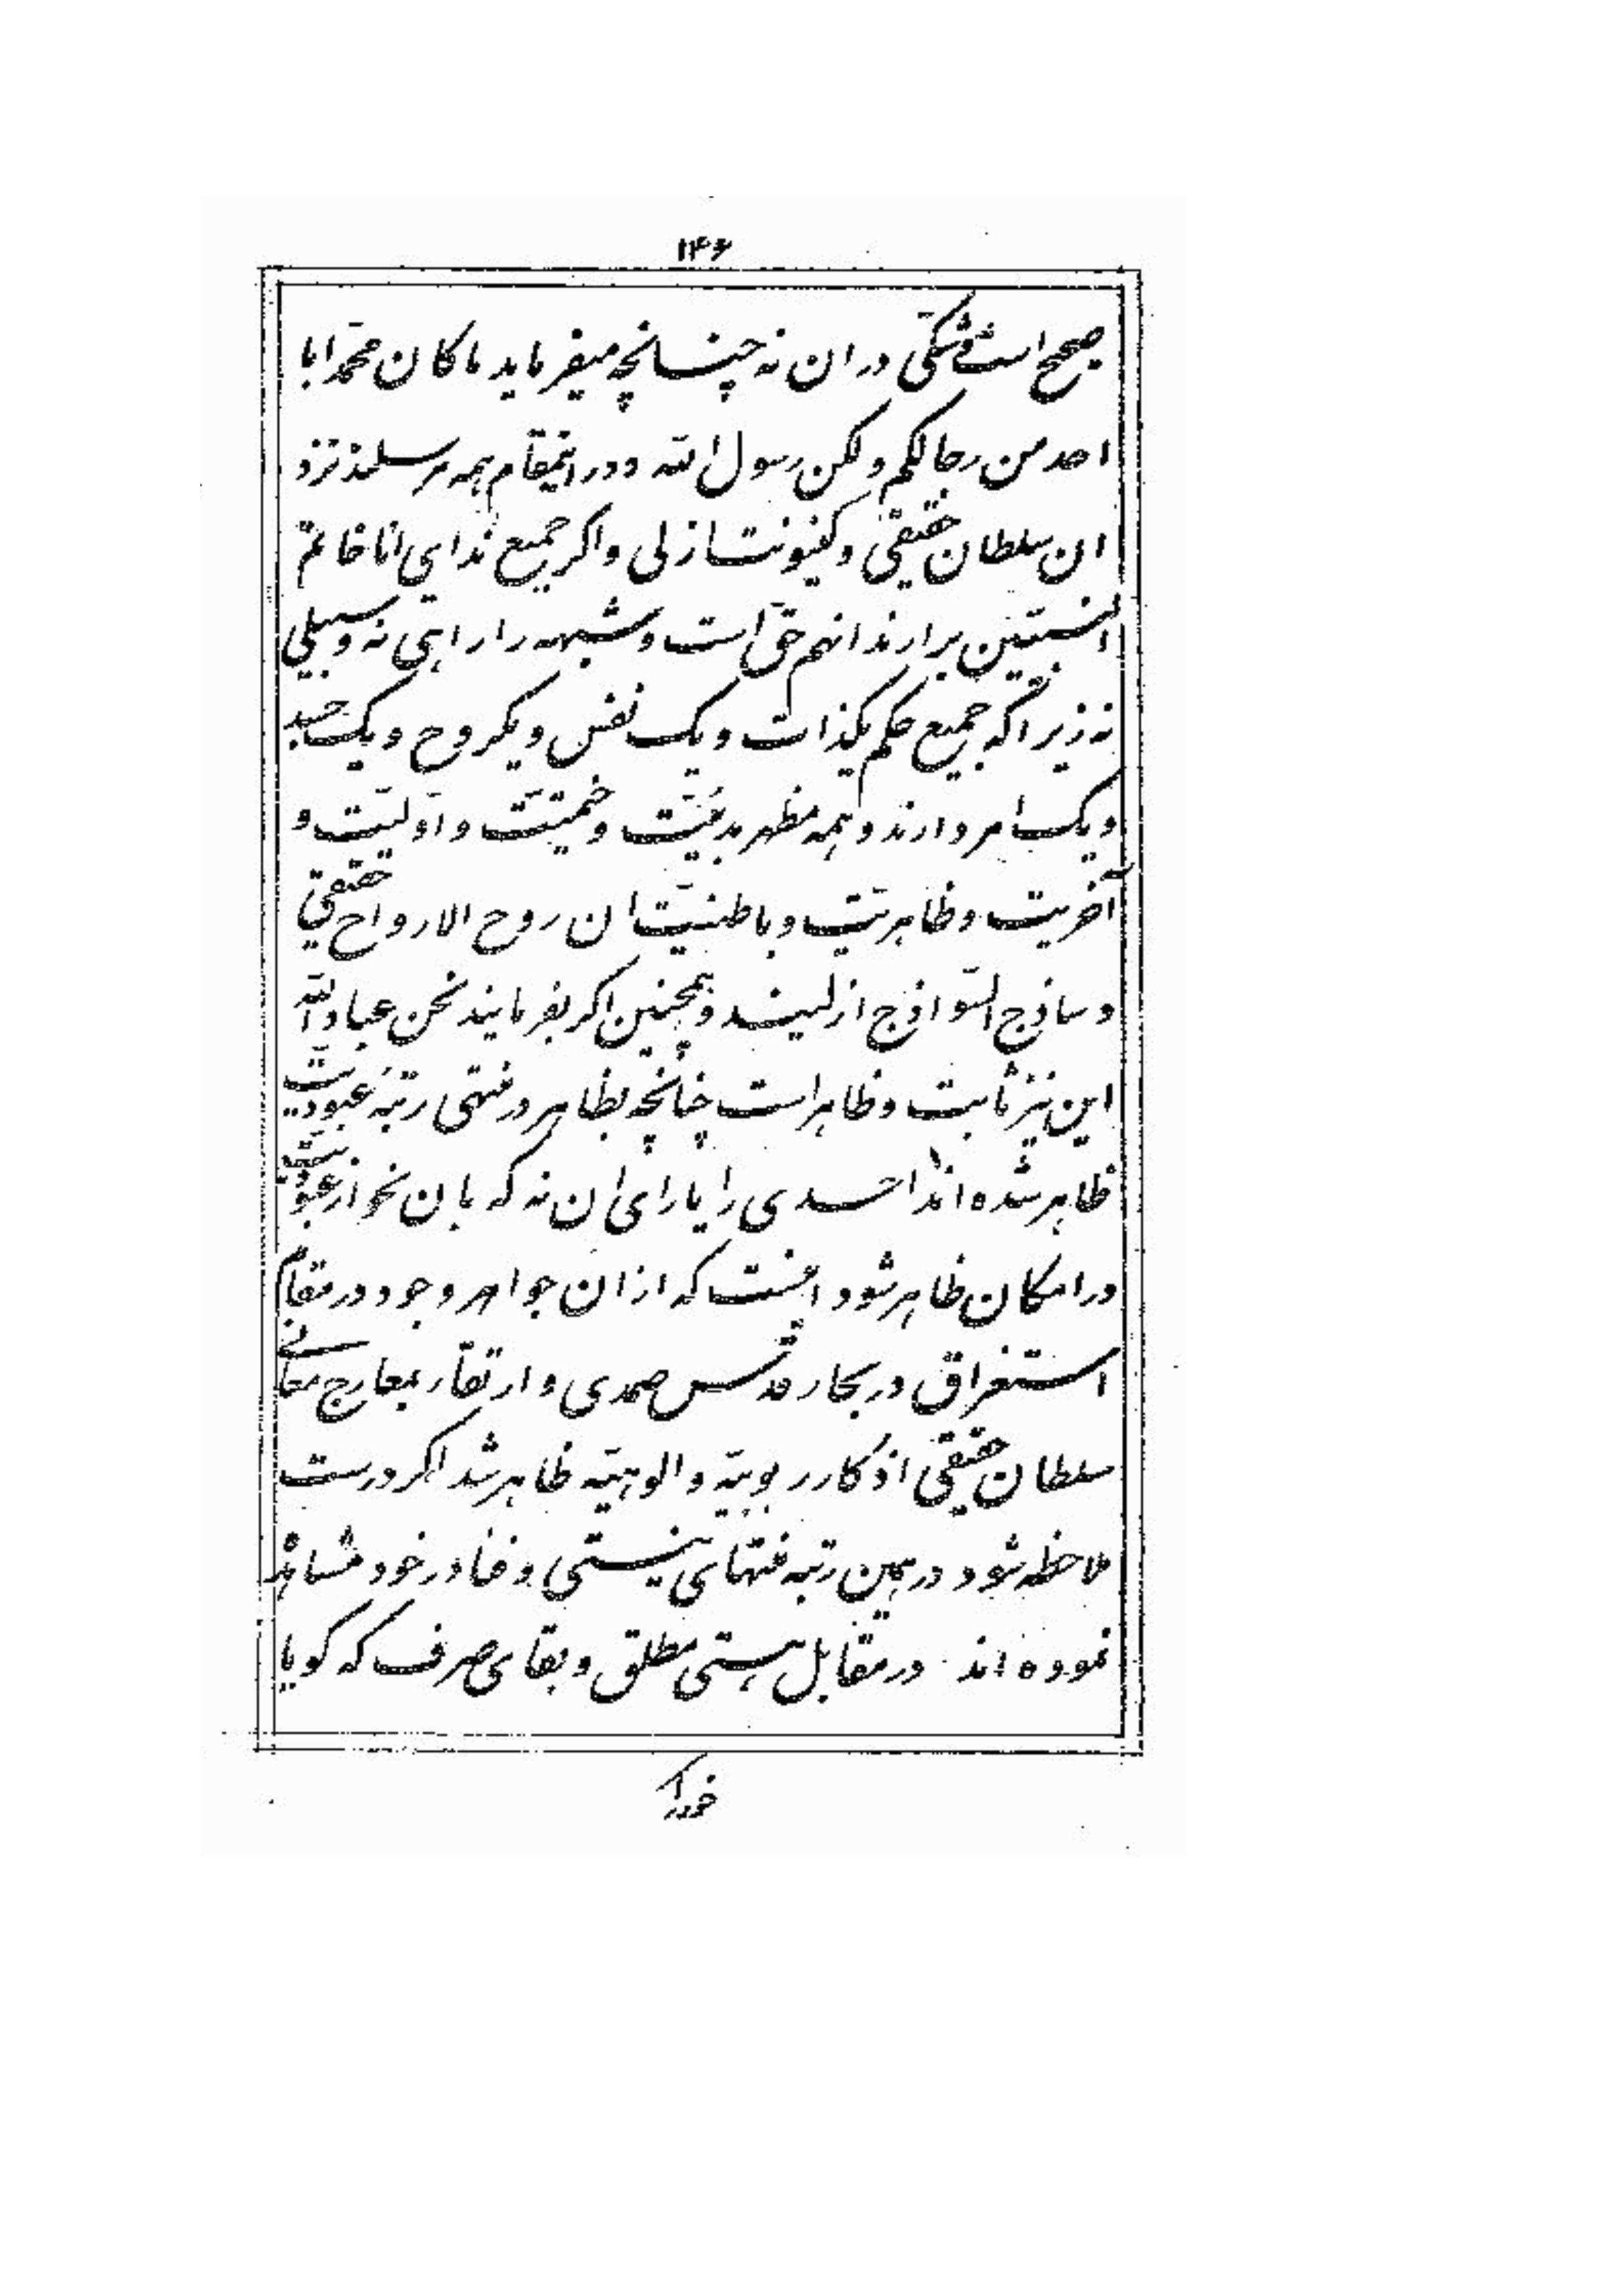 ۱۴۶
صحیح است و شکّی در ان نه چنانچه میفرماید ما کان محمّد ابا
احد من رجالکم و لکن رسول الله و در اینمقام همه مرسلند نزد
ان سلطان حقیقی و کینونت ازلی و اکر جمیع ندای انا خاتم
النبیّین برارند انهم حقّ است و شبهه را راهی نه و سبیلی
نه زیرا که جمیع حکم یکذات و یک نفس و یکروح و یک جسد
و یک امر دارند و همه مظهر بدئیّت و ختمیّت و اوّلیّت و
آخریت و ظاهریّت و باطنیّت ان روح الارواح حقیقی
و ساذج السّواذج ازلیند و همچنین اکر بفرمایند نحن عباد الله
این نیز ثابت و ظاهر است چنانچه بظاهر در منتهی رتبهٔ عبودیّت
ظاهر شده اند احدی را یارای ان نه که بان نحو از عبودیّت
در امکان ظاهر شود اینست که از ان جواهر وجود در مقام
استغراق در بحار قدس صمدی و ارتقاء بمعارج معانی
سلطان حقیقی اذکار ربوبیّه و الوهیّه ظاهر شد اکر درست
ملاحظه شود در همین رتبه منتهای نیستی و فنا در خود مشاهده
نموده اند در مقابل هستی مطلق و بقای صرف که کویا
خود را